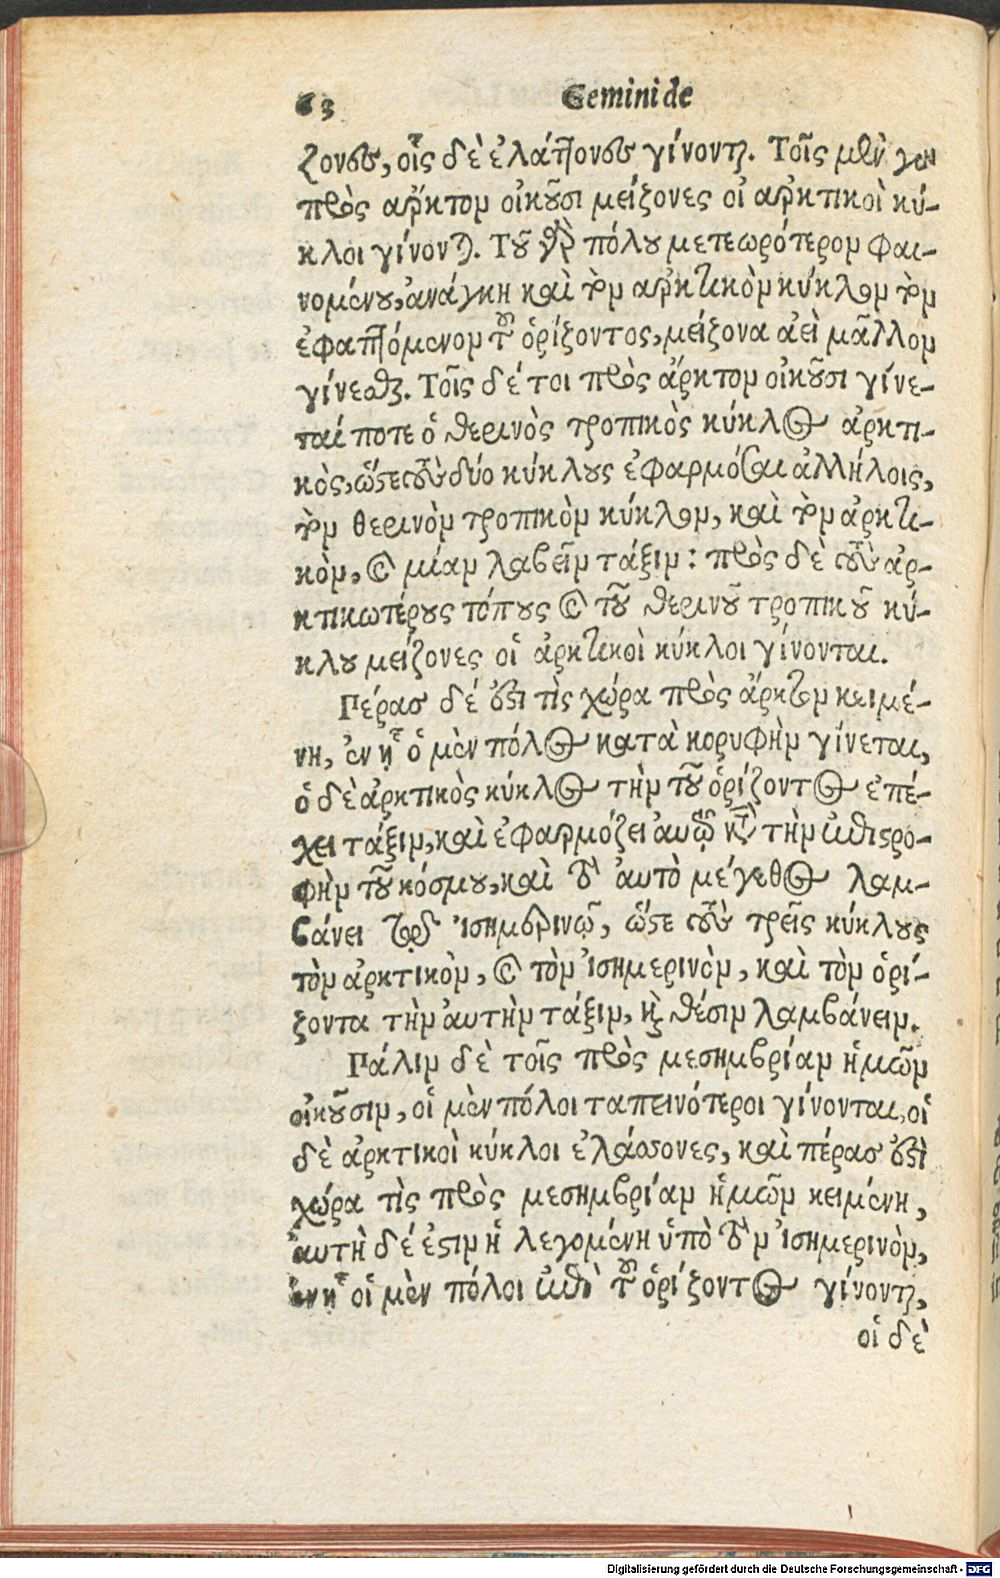 63 Gemini de
ζονες, οἷς δὲ ἐλάττονες γίνονται. Τοῖς μὲν γὰρ
πρὸς ἄρκτον οἰκοῦσι μείζονες οἱ ἀρκτικοὶ κύ-
κλοι γίνονται. Τοῦ γὰρ πόλου μετεωρότερον φαι-
νομένου, ἀνάγκη καὶ τὸν ἀρκτικὸν κύκλον τὸν
ἐφαπτόμενον τοῦ ὁρίζοντος, μείζονα ἀεὶ μᾶλλον
γίνεσθαι. Τοῖς δέ τοι πρὸς ἄρκτον οἰκοῦσι γίνε-
ταί ποτε ὁ θερινὸς τροπικὸς κύκλος ἀρκτι-
κὸς, ὥστε τοὺς δύο κύκλους ἐφαρμόσαι ἀλλήλοις,
τὸν θερινὸν τροπικὸν κύκλον, καὶ τὸν ἀρκτι-
κὸν, καὶ μίαν λαβεῖν τάξιν: πρὸς δὲ τοὺς ἀρ-
κτικωτέρους τόπους καὶ τοῦ θερινοῦ τροπικοῦ κύ-
κλου μείζονες οἱ ἀρκτικοὶ κύκλοι γίνονται.
Πέρας δέ ἐστι τὶς χώρα πρὸς ἄρκτον κειμέ-
νη, ἐν ᾗ ὁ μὲν πόλος κατὰ κορυφὴν γίνεται,
ὁ δὲ ἀρκτικὸς κύκλος τὴν τοῦ ὁρίζοντος ἐπέ-
χει τάξιν, καὶ ἐφαρμόζει αὐτῷ κατὰ τὴν ἐπιστρο-
φὴν τοῦ κόσμου, καὶ τὸ αὐτὸ μέγεθος λαμ-
βάνει τῷ ἰσημερινῷ, ὥστε τοὺς τρεῖς κύκλους
τὸν ἀρκτικὸν, καὶ τὸν ἰσημερινὸν, καὶ τὸν ὁρί-
ζοντα τὴν αὐτὴν τάξιν, καὶ θέσιν λαμβάνειν.
Πάλιν δὲ τοῖς πρὸς μεσημβρίαν ἡμῶν
οἰκοῦσιν, οἱ μὲν πόλοι ταπεινότεροι γίνονται, οἱ
δὲ ἀρκτικοὶ κύκλοι ἐλάσσονες, καὶ πέρας ἐστὶ
χώρα τὶς πρὸς μεσημβρίαν ἡμῶν κειμένη,
αὐτὴ δέ ἐστιν ἡ λεγομένη ὑπὸ τὸν ἰσημερινὸν,
ἐν ᾗ οἱ μὲν πόλοι ἐπὶ τοῦ ὁρίζοντος γίνονται,
οἱ δὲ
Digitalisierung gefördert durch die Deutsche Forschungsgemeinschaft - DFG